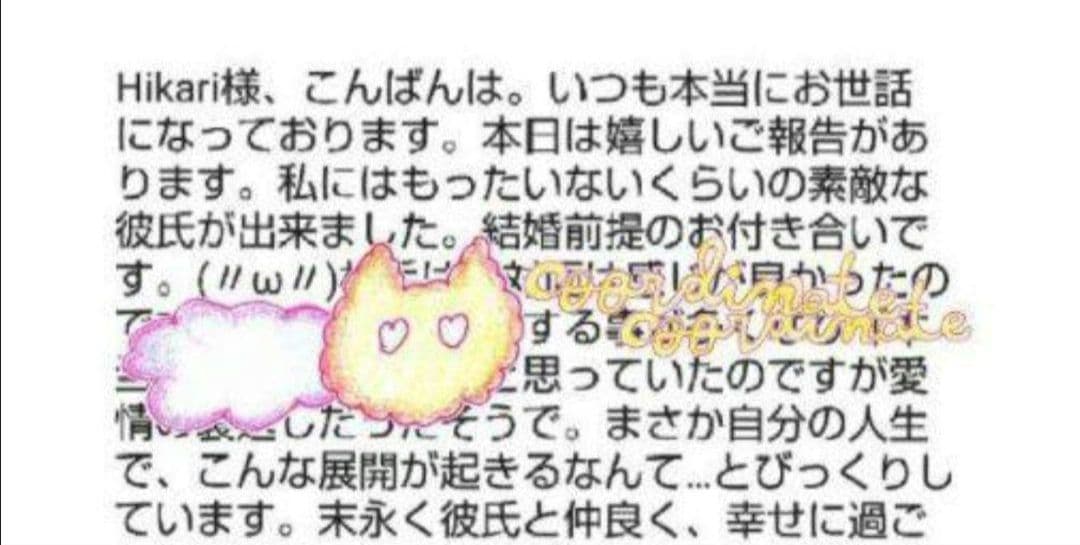 Hikari様、こんばんは。いつも本当にお世話
になっております。本日は嬉しいご報告があ
ります。私にはもったいないくらいの素敵な
彼氏が出来ました。結婚前提のお付き合いで
す。(〃ω〃) 感じが良かったの
coordinate
で する
coordinate
思っていたのですが愛
情の裏返しだったそうで。まさか自分の人生
で、こんな展開が起きるなんて…とびっくりし
ています。末永く彼氏と仲良く、幸せに過ご